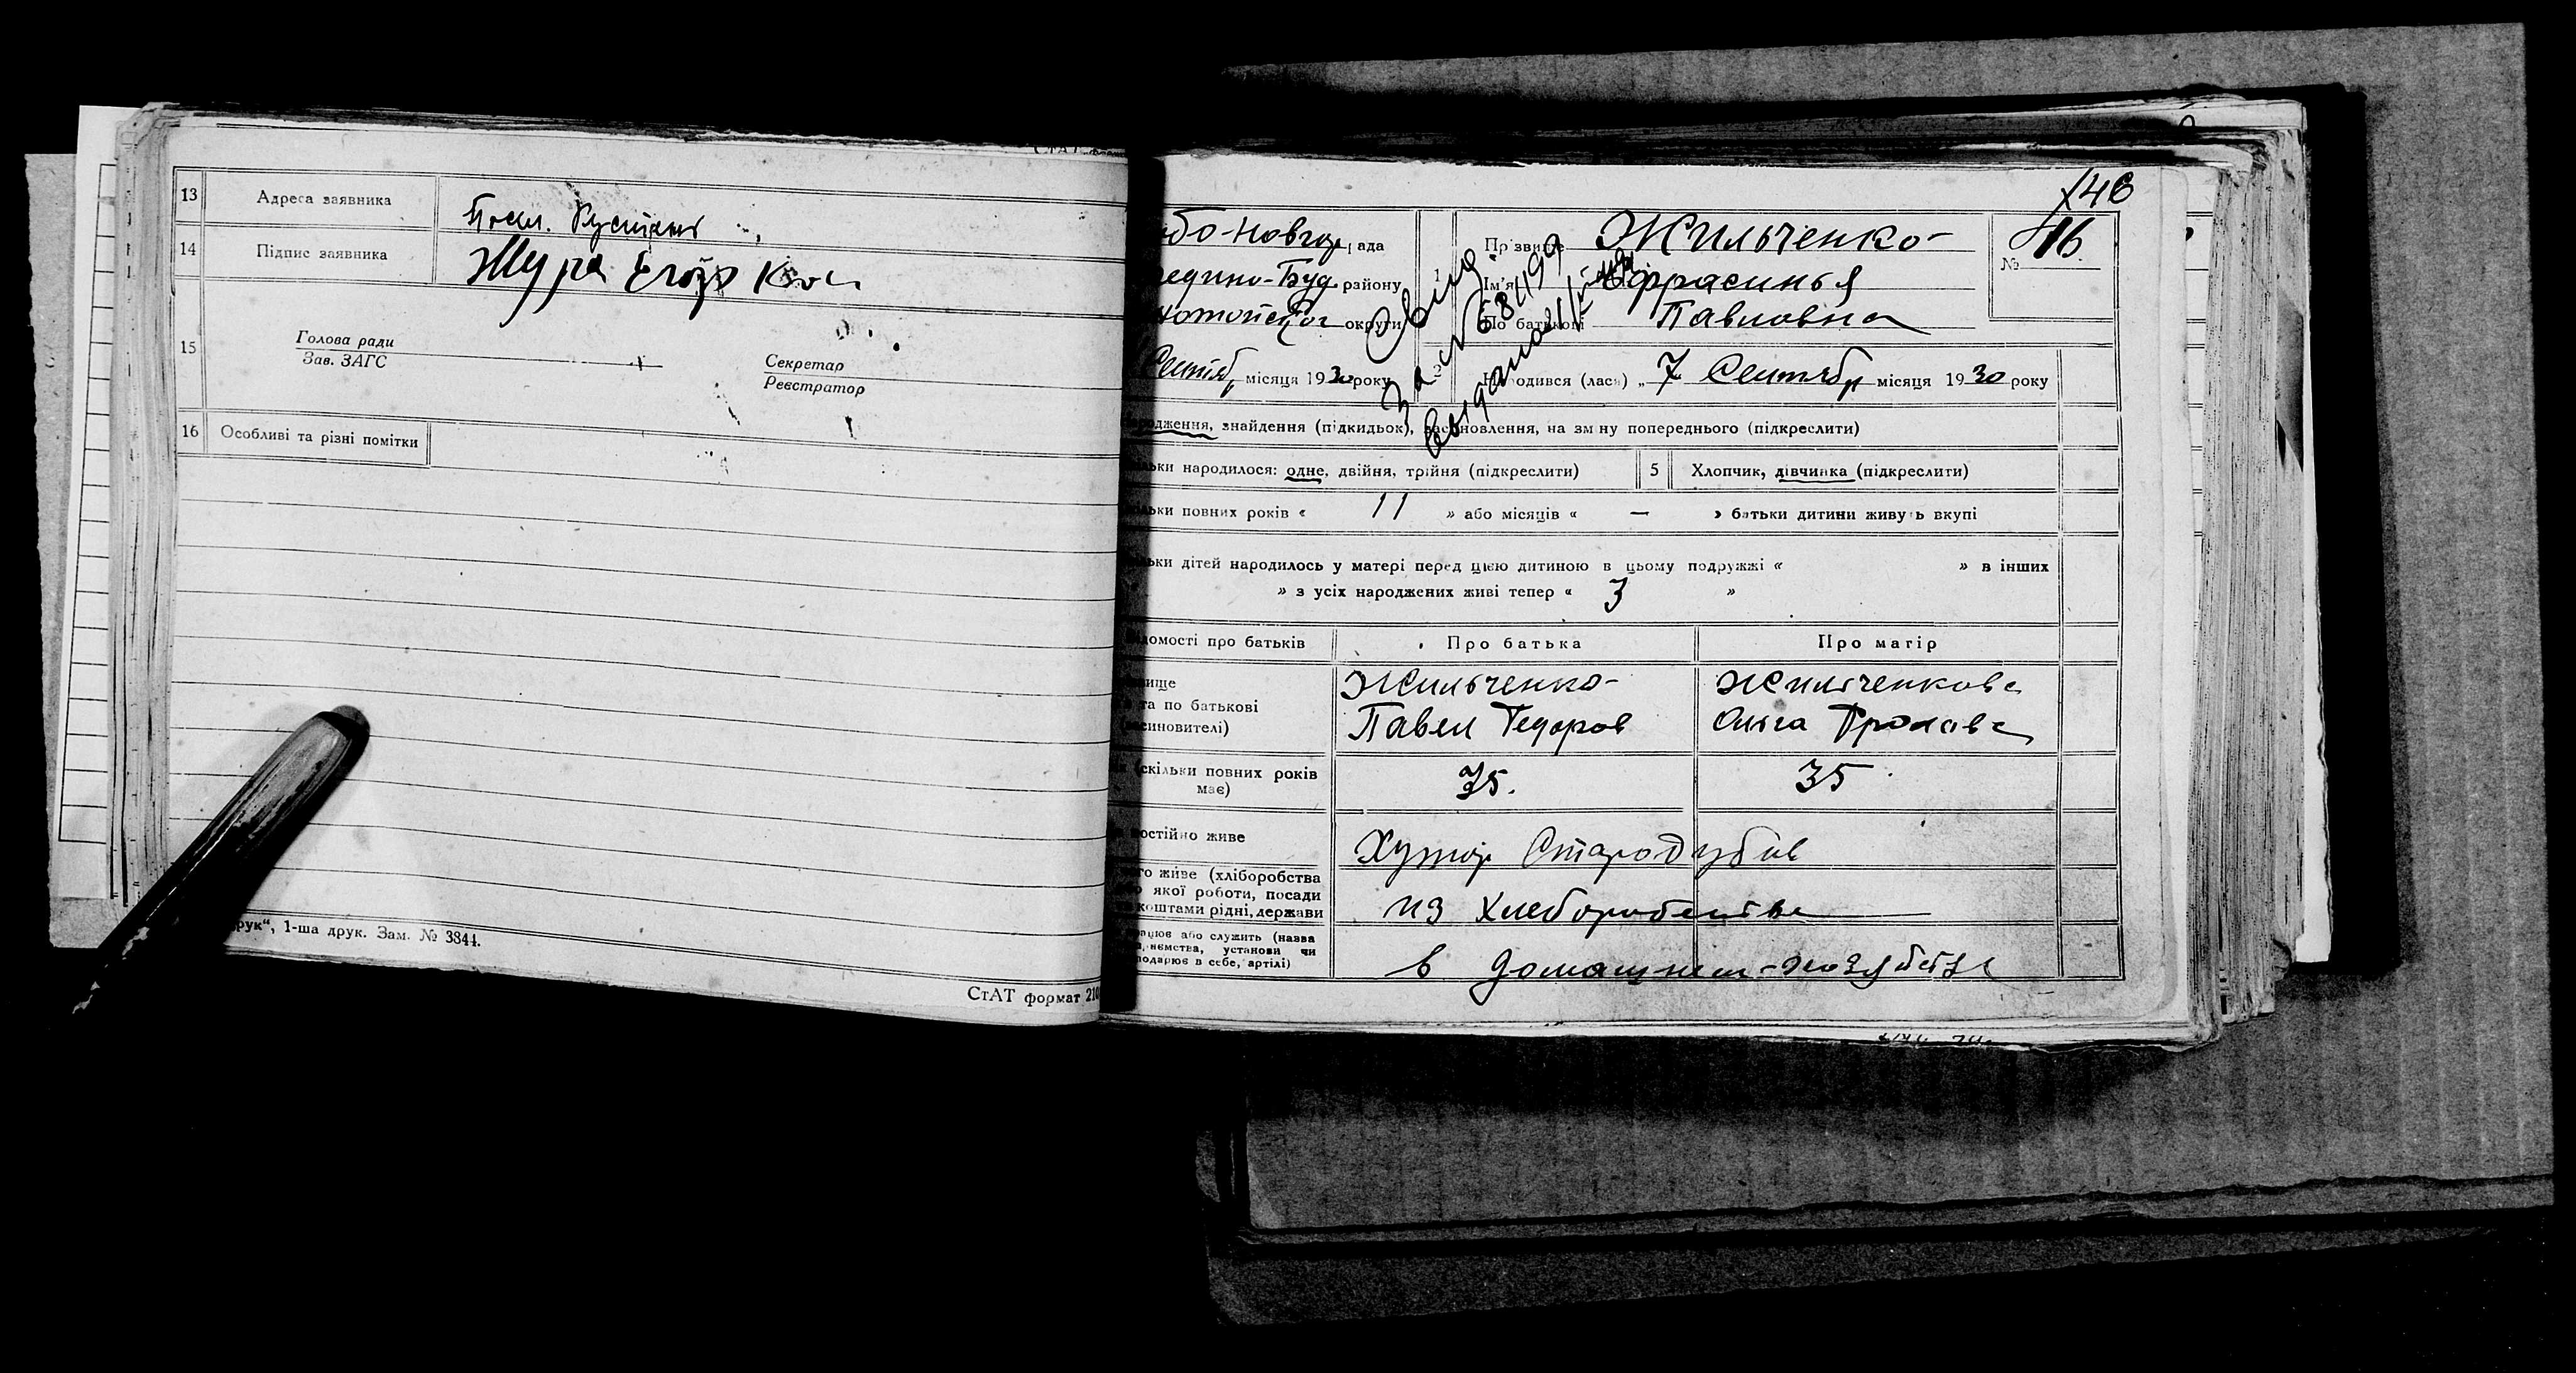 13 Адреса заявника Посл.
14 Підпис заявника Жура Егор
15 Голова ради
Зав. ЗАГС
Секретар
Реєстратор
16 Особливі та різні помітки
рук“, 1-ша друк. Зам. № 3844.
СтАТ формат 210
146
бо-Новгор ада
1 Прізвище Жильченко
№ 16
едино-Буд. району
Ім'я Ефрасинья
округи
По батькові Павловна
Сентяб місяця 1930 року
2 Народився (лась) „ 7 Сентябр місяця 1930 року
Свид.
родження, знайдення (підкидьок), всиновлення, на зміну попереднього (підкреслити)
льки народилося: одне, двійня, трійня (підкреслити)
5 Хлопчик, дівчинка (підкреслити)
льки повних років « 11 » або місяців « — » батьки дитини живуть вкупі
льки дітей народилось у матері перед цією дитиною в цьому подружжі « » в інших
» з усіх народжених живі тепер « 3 »
домості про батьків
Про батька
Про матір
вище
та по батькові
синовителі)
Жильченко
Павел Тедоров
Жильченкова
Ольга
(скільки повних років
має)
35.
35
постійно живе
Хутор Стародубов
го живе (хліборобства
якої роботи, посади
коштами рідні, держави
из хлеборобства
рацює або служить (назва
немства, установи чи
подарює в себе, артілі)
в домашнем хозяйстве